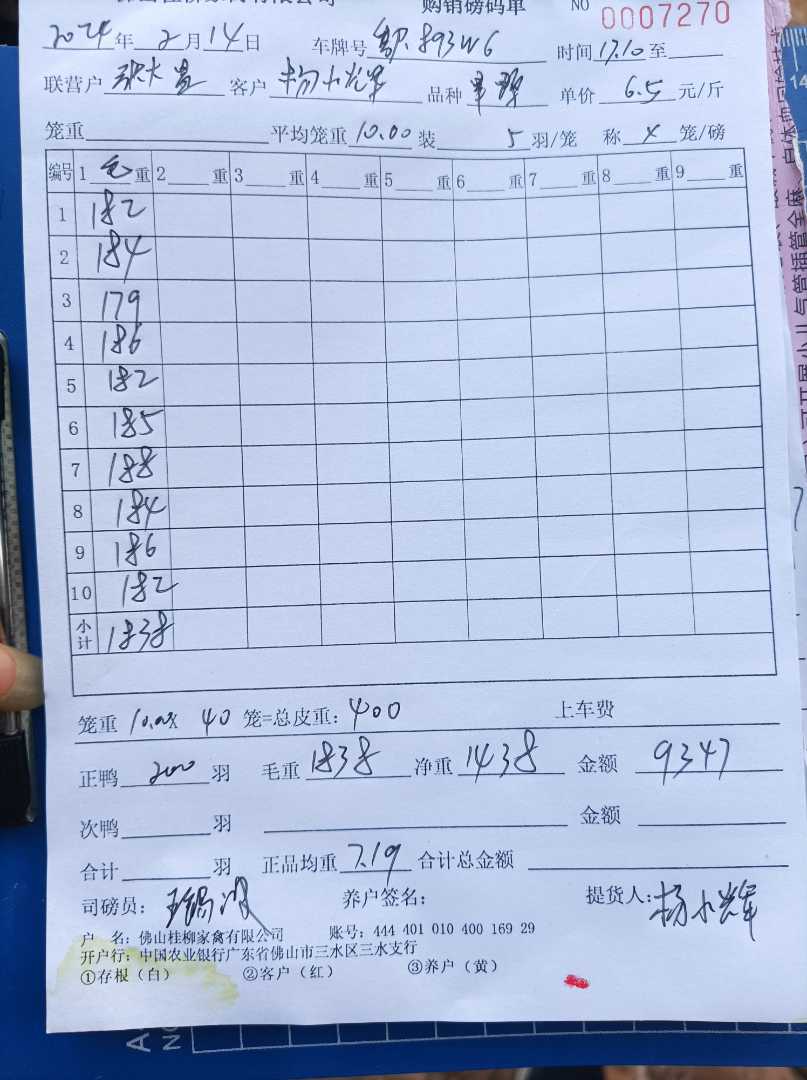 购销磅码单 NO 0007270
2024年2月14日 车牌号 893W6 时间 17.10 至
联营户 张大 客户 杨小光 品种 单价 6.5 元/斤
笼重 平均笼重 10.00 装 5 羽/笼 称 4 笼/磅
编号 1 毛 重 2 重 3 重 4 重 5 重 6 重 7 重 8 重 9 重
1 182
2 184
3 179
4 186
5 182
6 185
7 188
8 184
9 186
10 182
小计 1838
笼重 10.00X 40 笼=总皮重: 400 上车费
正鸭 200 羽 毛重 1838 净重 1438 金额 9347
次鸭 羽 金额
合计 羽 正品均重 7.19 合计总金额
司磅员: 养户签名: 提货人: 杨小辉
户 名: 佛山桂柳家禽有限公司 账号: 444 401 010 400 169 29
开户行: 中国农业银行广东省佛山市三水区三水支行
①存根(白) ②客户(红) ③养户(黄)